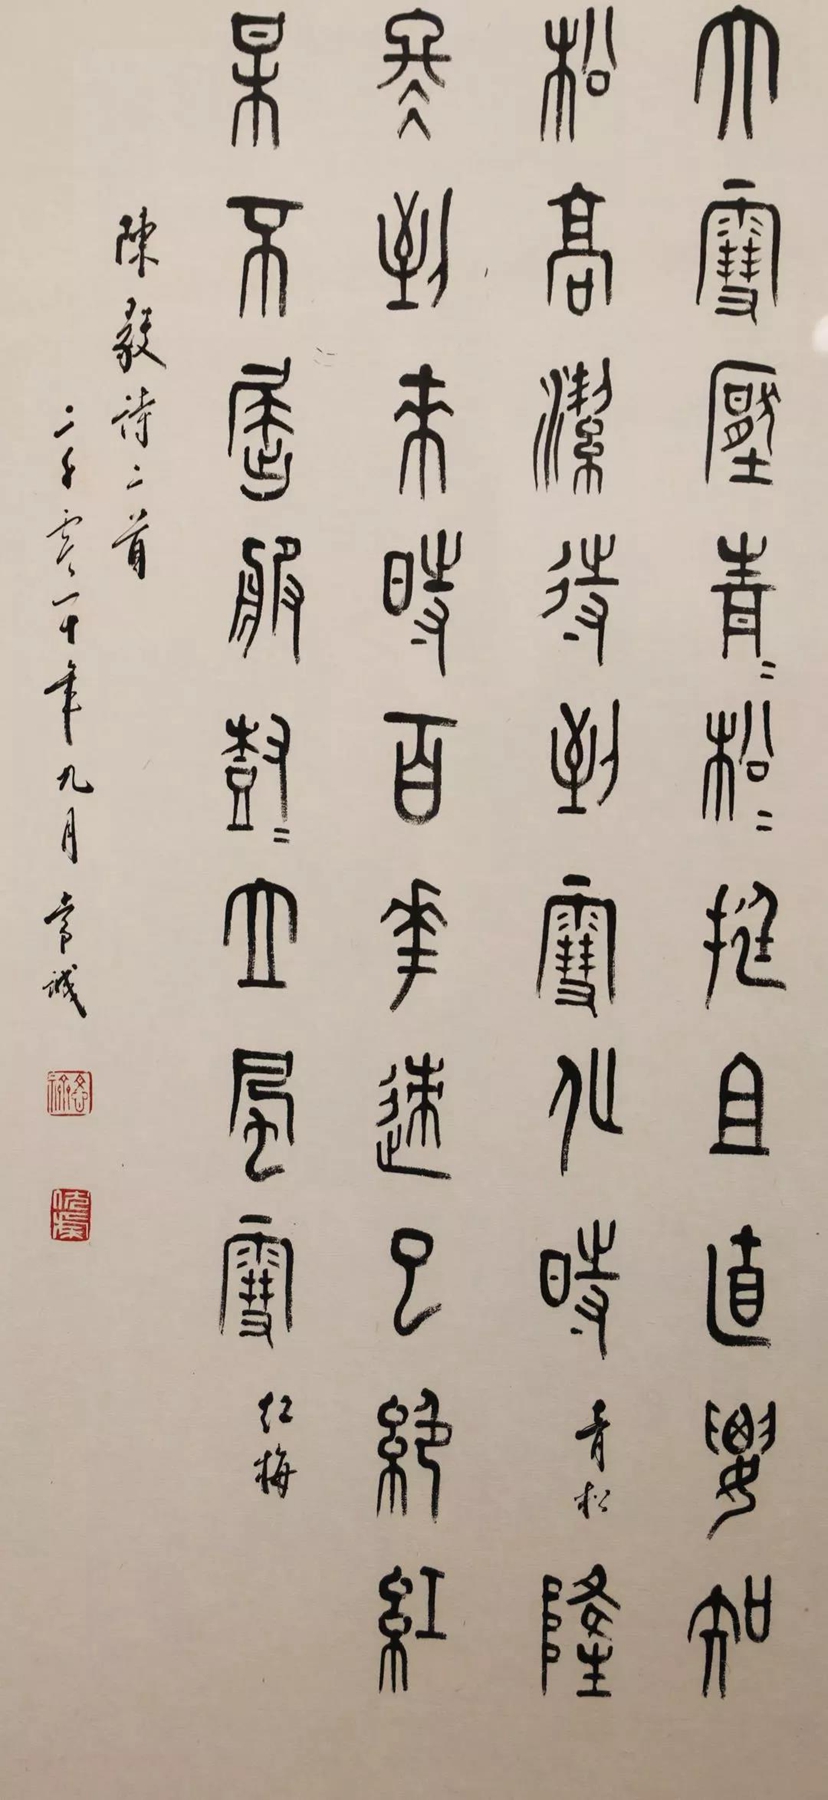 大雪壓青〻松〻挺且直要知
松高潔待到雪化時 青松 隆
冬到來時百花迹已絕紅
某不屈服樹〻立風雪 紅梅
陳毅詩二首
二千零一十年九月 常誠